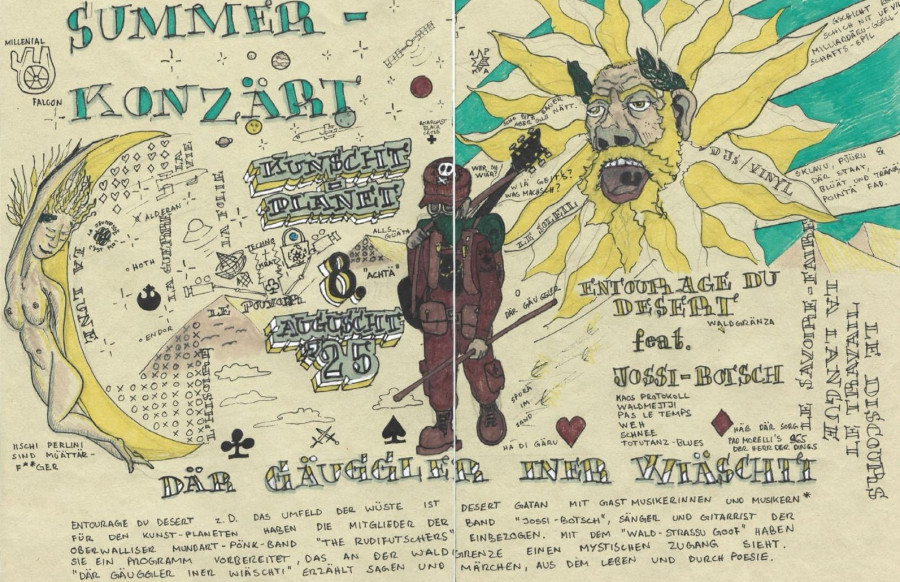 SUMMER -
KONZÄRT
MILLENIAL
FALCON
KUNSCHT
-
PLANET
8.
"ACHTÄ"
AUGUSCHT
'25
LA LUNE
LA VIE
LA FOLIE
LA GUERRE
ALDERAN
HOTH
ENDOR
LE POUVOIR
L'HISOIRE
TECHNO
ALLS GUÄTA
ANARCHIST
BLACK
CROSS
WER SY
WIÄR?
WIÄ GEITS?
WAS MACHSCH?
LE SOLEIL
DJs/VINYL
GSCHICHT
SCHICH NIT UF VIL
MILLIARDÄRU-GSELL-
SCHAFTS-SPIL
SKLAVU, PÜÜRU &
DÄR STAAT,
BLÜÄT UND TRÄNÄ
POINTÄ FAB.
DÄR GÄUGGLER
ENTOURAGE DU
DESERT
WALDGRÄNZA
feat.
JOSSI-BOTSCH
KAOS PROTOKOLL
WALDMEITJI
PAS LE TEMPS
WEH
SCHNEE
TOTUTANZ-BLUES
HÄB DÄR SORG
PAD MORELLI'S
DER HERR DER DINGS
SPORÄ
IM
SAND
HA DI GÄRU
LE SAVOIRE-FAIRE
LA LANGUE
LE DISCOURS
IISCHI PERLINI
SIND MÜÄTTÄR-
F**GER
DÄR GÄUGGLER INER WIÄSCHTI
ENTOURAGE DU DESERT Z.D. DAS UMFELD DER WÜSTE IST DESERT GATAN MIT GASTMUSIKERINNEN UND MUSIKERN*
FÜR DEN KUNST-PLANETEN HABEN DIE MITGLIEDER DER BAND "JOSSI-BOTSCH", SÄNGER UND GITARRIST DER
OBERWALLISER MUNDART-PÖNK-BAND "THE RUDIFUTSCHERS" EINBEZOGEN. MIT DEM "WALD-STRASSU GOOF" HABEN
SIE EIN PROGRAMM VORBEREITET, DAS AN DER WALD GRENZE EINEN MYSTISCHEN ZUGANG SIEHT.
"DÄR GÄUGGLER INER WIÄSCHTI" ERZÄHLT SAGEN UND MÄRCHEN, AUS DEM LEBEN UND DURCH POESIE.